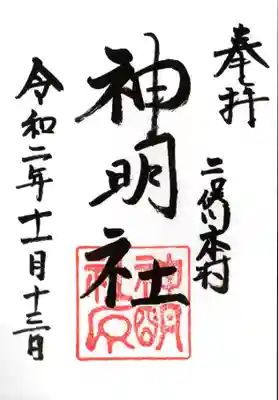 奉拝
二俣川本村
神明社
神明社印
令和二年十一月十三日